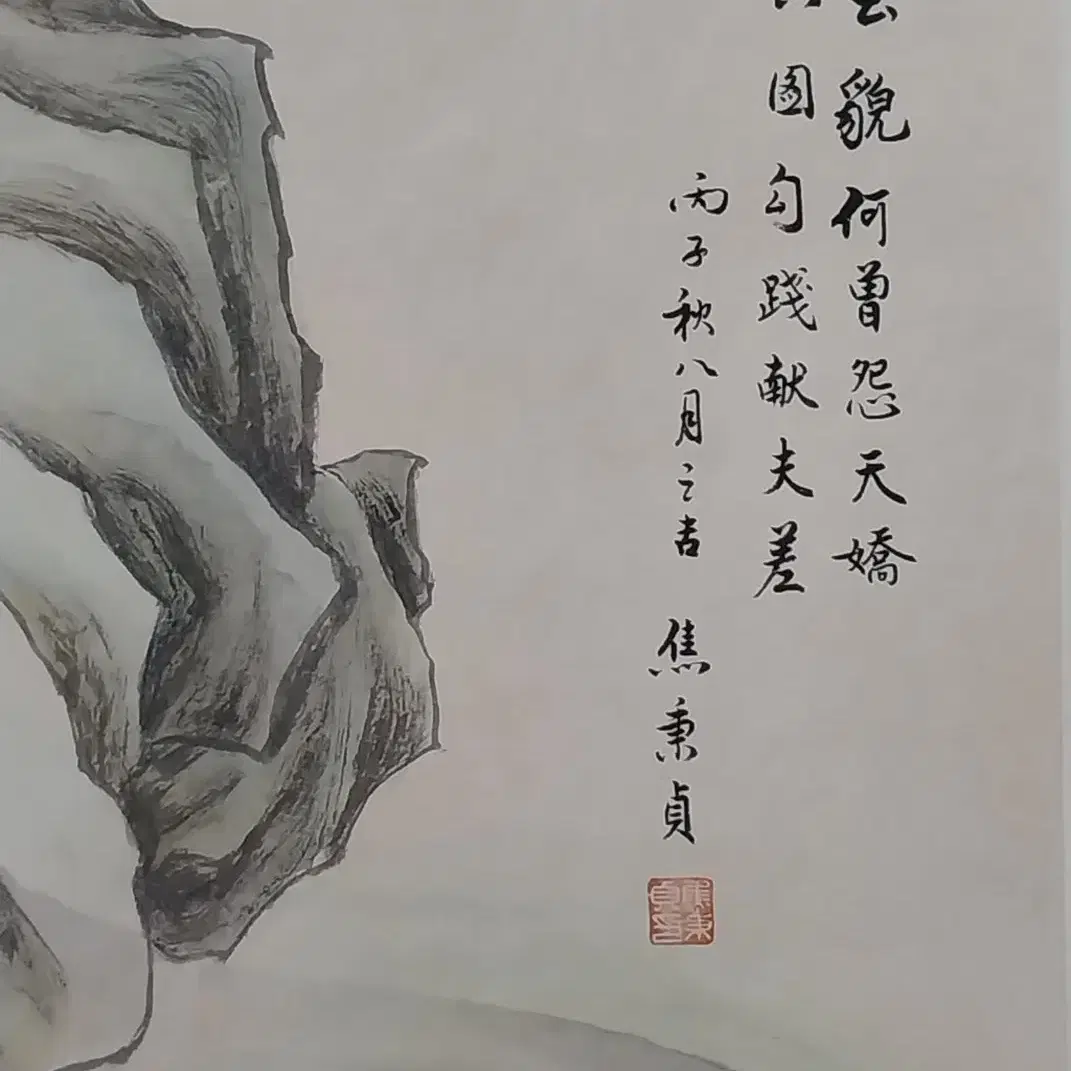 貌何曾怨天嬌
图勾踐献夫差
丙子秋八月之吉 焦秉貞
焦秉貞印